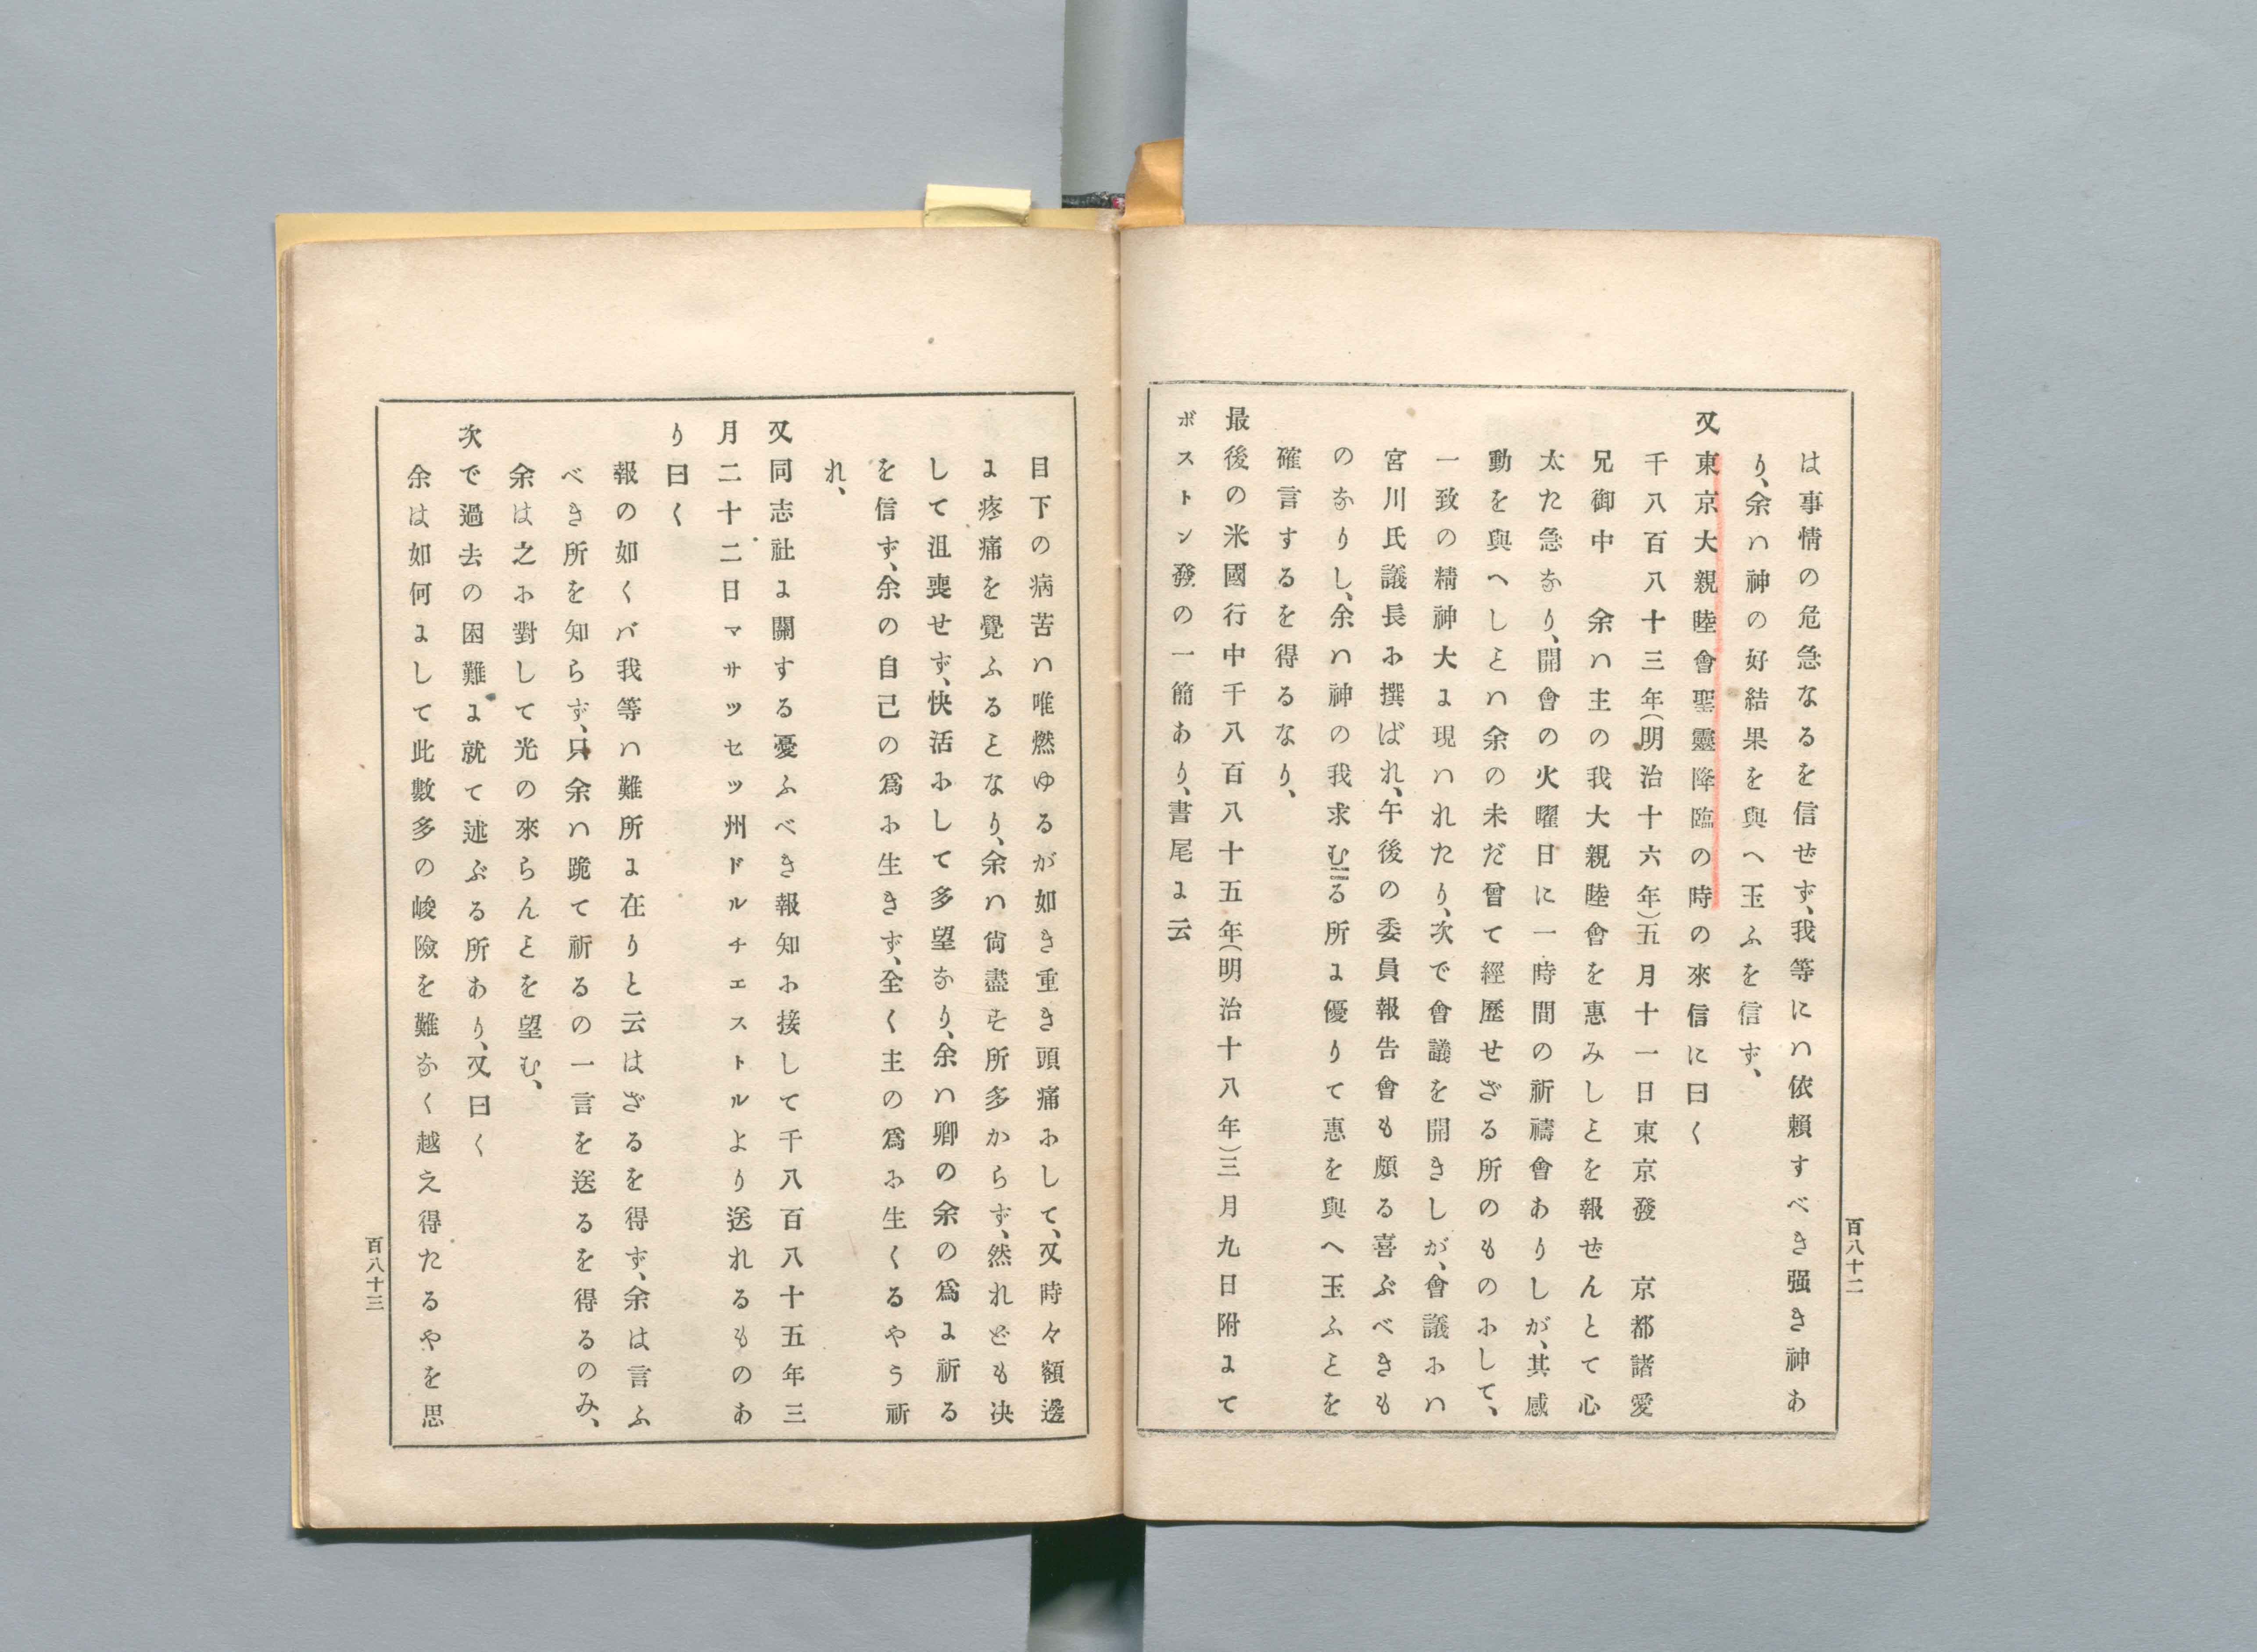 は事情の危急なるを信ぜず、我等にハ依賴すべき强き神あ
り、余ハ神の好結果を與へ玉ふを信ず、
又東京大親睦會聖靈降臨の時の來信に曰く
千八百八十三年（明治十六年）五月十一日東京發　京都諸愛
兄御中　余ハ主の我大親睦會を惠みしヿを報ぜんとて心
太た急なり、開會の火曜日に一時間の祈禱會ありしが、其感
動を與へしヿハ余の未だ曾て經歷せざる所のものにして、
一致の精神大に現ハれたり、次で會議を開きしが、會議にハ
宮川氏議長に撰ばれ、午後の委員報告會も頗る喜ぶべきも
のなりし、余ハ神の我求むる所に優りて惠を與へ玉ふヿを
確言するを得るなり、
最後の米國行中千八百八十五年（明治十八年）三月九日附にて
ボストン發の一簡あり、書尾に云
百八十二
目下の病苦ハ唯燃ゆるが如き重き頭痛にして、又時々額邊
に疼痛を覺ふるヿなり、余ハ尙盡す所多からず、然れども决
して沮喪せず、快活にして多望なり、余ハ卿の余の爲に祈る
を信ず、余の自己の爲に生きず、全く主の爲に生くるやう祈
れ、
又同志社に關する憂ふべき報知に接して千八百八十五年三
月二十二日マサツッセッツ州ドルチェストルより送れるものあ
り曰く
報の如くバ我等ハ難所に在りと云はざるを得ず、余は言ふ
べき所を知らず、只余ハ跪て祈るの一言を送るを得るのみ、
余は之に對して光の來らんヿを望む、
次で過去の困難に就て述ぶる所あり、又曰く
余は如何にして此數多の峻險を難なく越え得たるやを思
百八十三